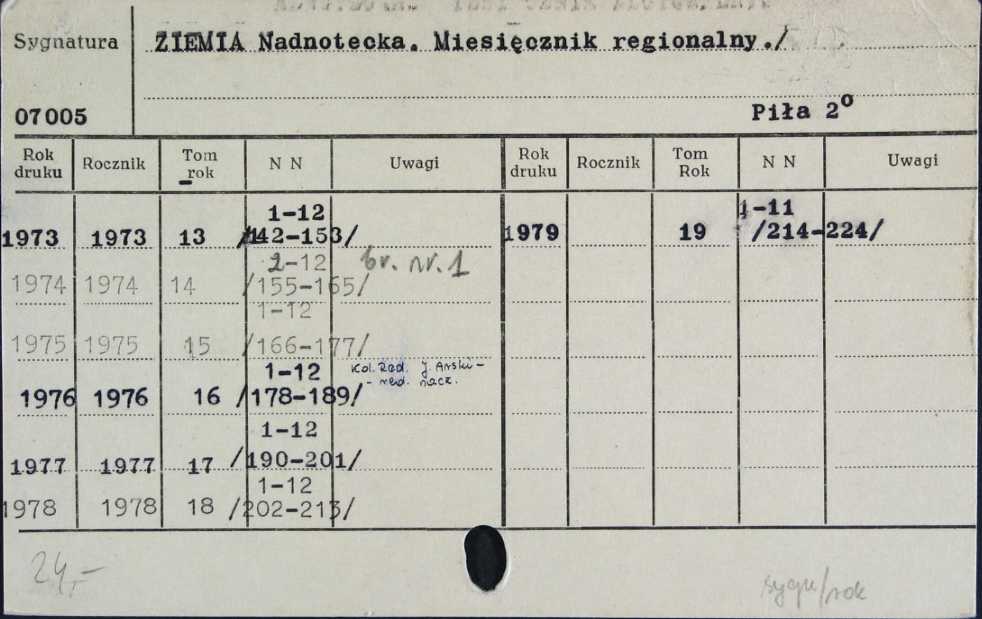 Sygnatura ZIEMIA Nadnotecka. Miesięcznik regionalny./
07005 Piła 2°
Rok druku Rocznik Tom rok N N Uwagi Rok druku Rocznik Tom Rok N N Uwagi
1-12 1-11
1973 1973 13 /142-153/ 1979 19 /214-224/
2-12 br. nr. 1
1974 1974 14 /155-165/
1-12
1975 1975 15 /166-177/
1-12 Kol. Red. J. Arski -
- red. nacz.
1976 1976 16 /178-189/
1-12
1977 1977 17 /190-201/
1-12
1978 1978 18 /202-213/
24,-
sygn/rok